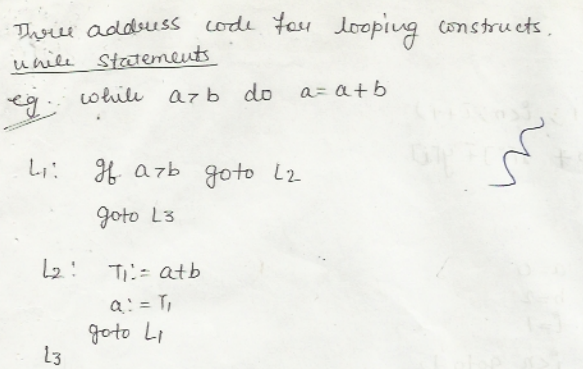 Three address code for looping constructs.
while statements
eg. while a>b do a=a+b
L1: If a>b goto L2
goto L3
L2: T1:= a+b
a:= T1
goto L1
L3